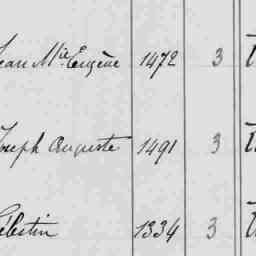 Jean Mie Eugène 1472 3
Joseph Auguste 1491 3
Célestin 1334 3